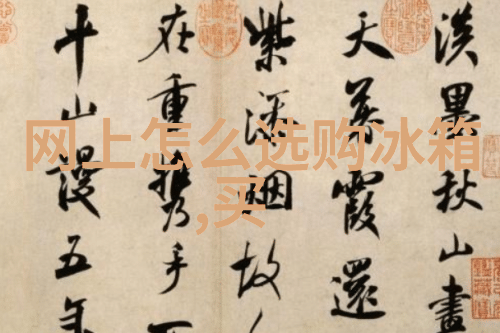 淡墨秋山畫
天暮霞還
紫添烟故
在重携手
千山謾五年
网上怎么选购冰箱
,买